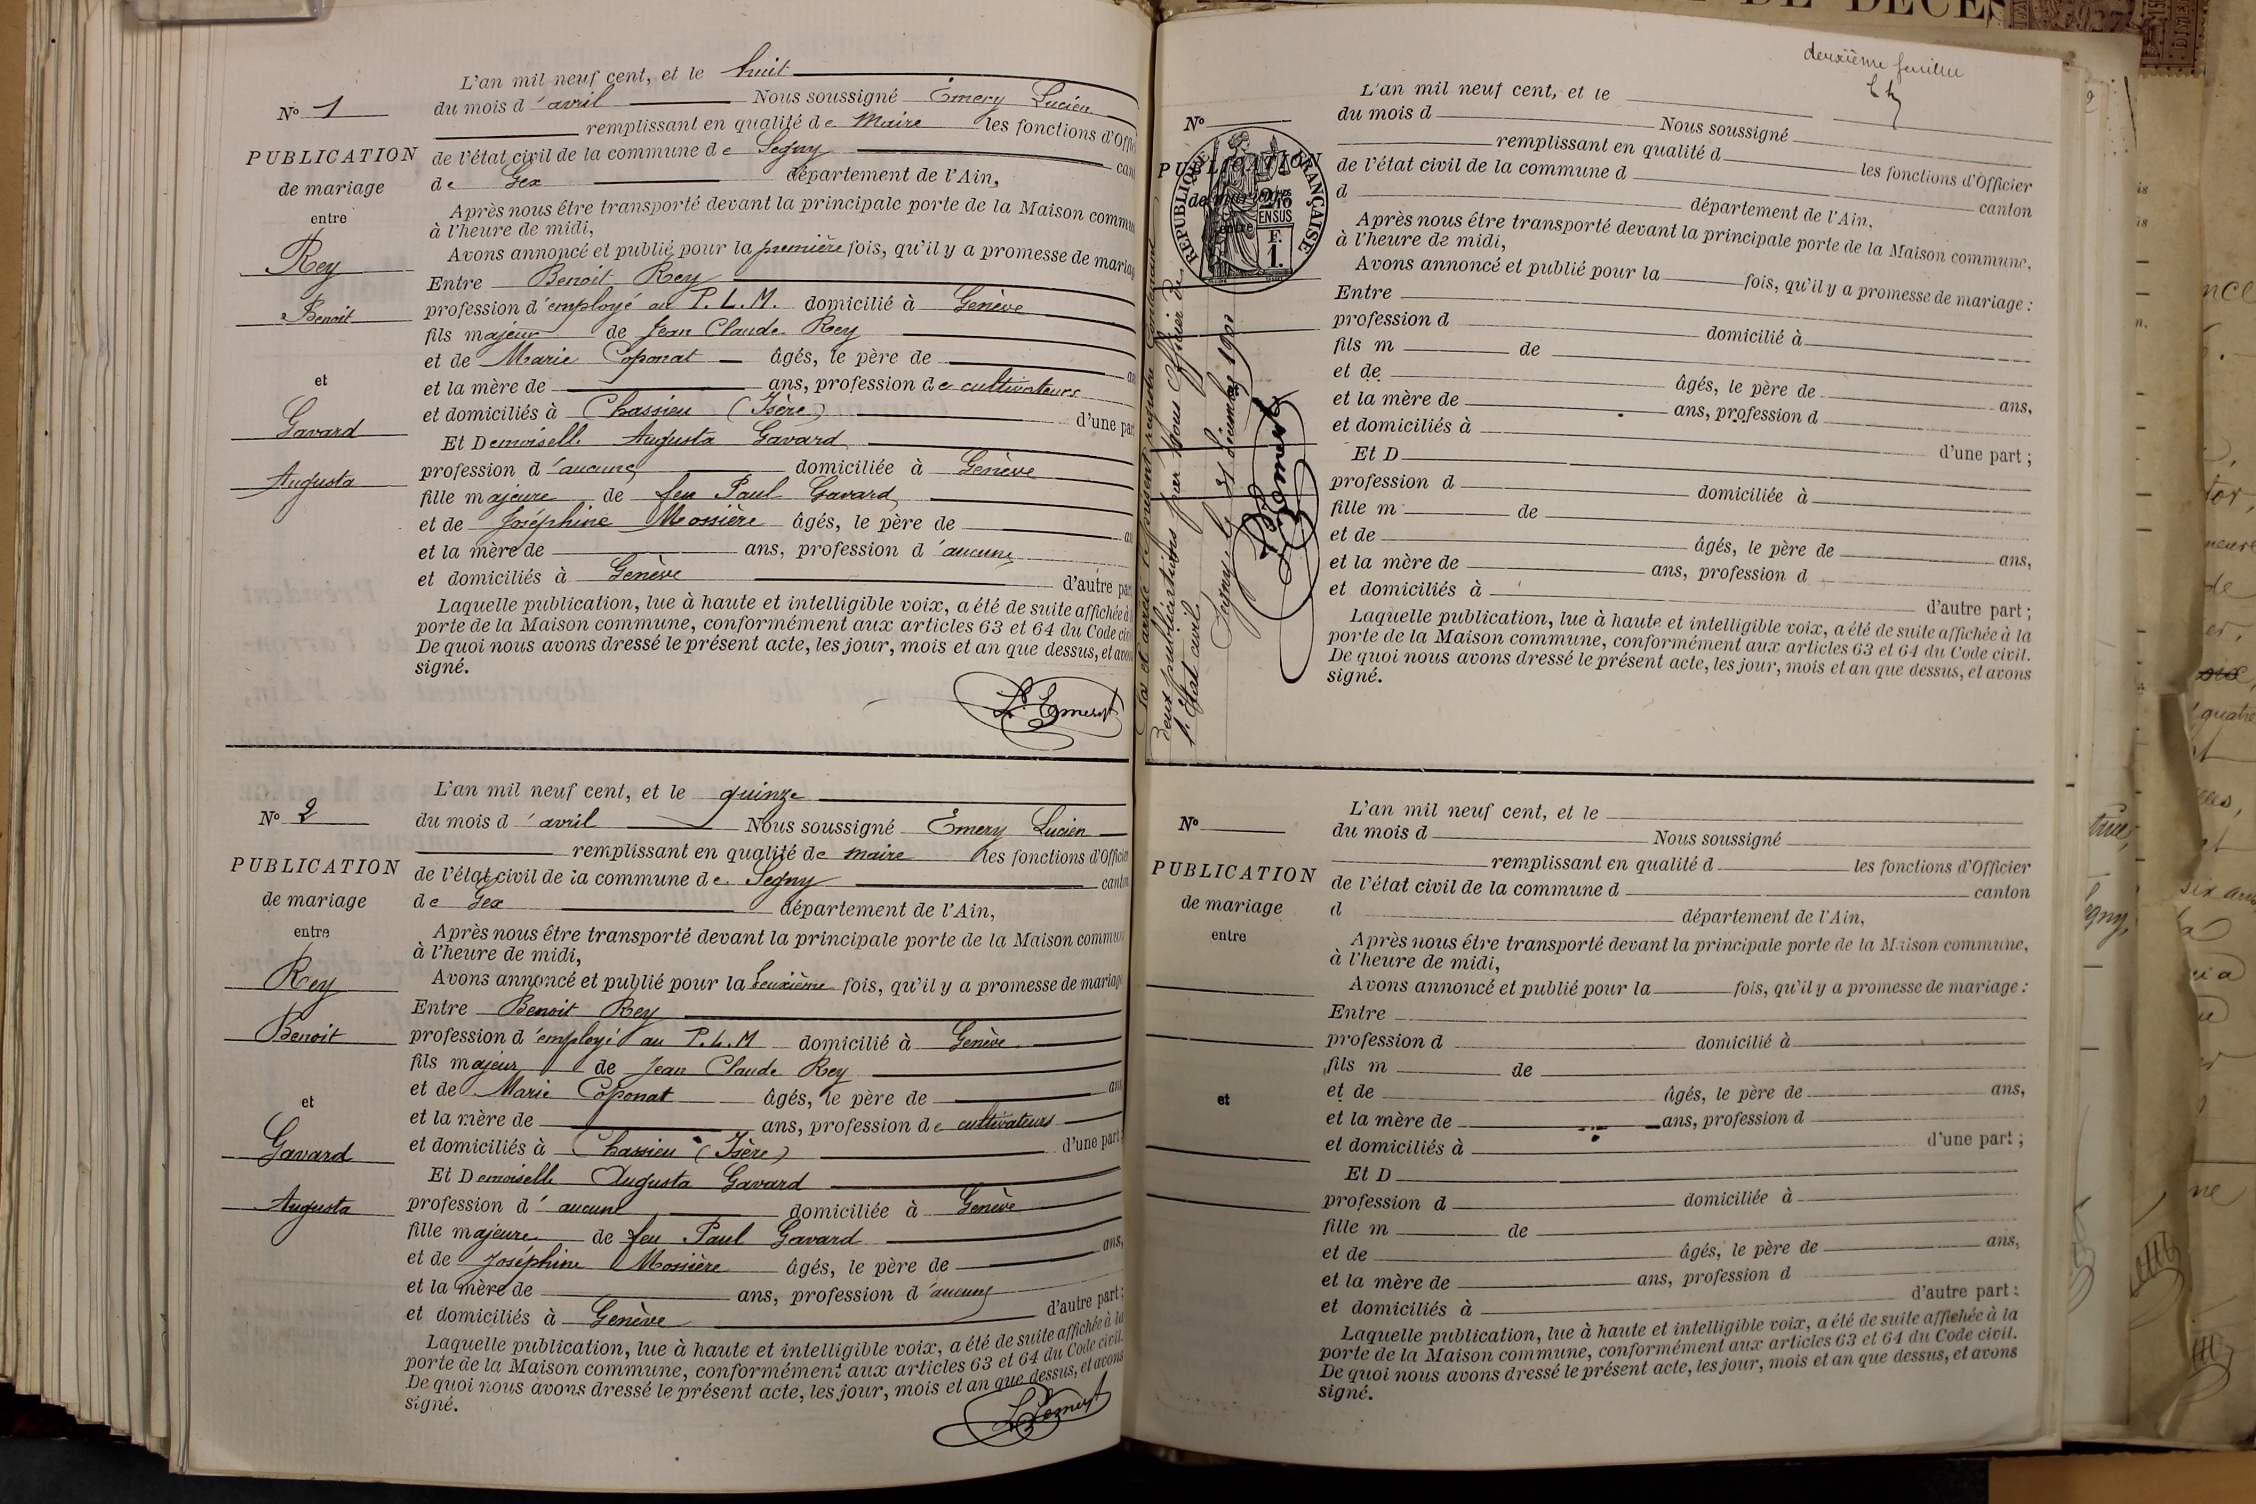 L'an mil neuf cent, et le huit
du mois d'avril Nous soussigné Émery Lucien
remplissant en qualité de Maire les fonctions d'Offi
de l'état civil de la commune de Segny can
de Gex département de l'Ain,
Après nous être transporté devant la principale porte de la Maison commu
à l'heure de midi,
Avons annoncé et publié pour la première fois, qu'il y a promesse de maria
Entre Benoit Rey
profession d'employé au P. L. M. domicilié à Genève
fils majeur de Jean Claude Rey
et de Marie Coponat âgés, le père de an
et la mère de ans, profession de cultivateurs
et domiciliés à Chassieu (Isère) d'une par
Et Demoiselle Augusta Gavard
profession d'aucune domiciliée à Genève
fille majeure de feu Paul Gavard
et de Joséphine Mossière âgés, le père de an
et la mère de ans, profession d'aucune
et domiciliés à Genève d'autre par
Laquelle publication, lue à haute et intelligible voix, a été de suite affichée à
porte de la Maison commune, conformément aux articles 63 et 64 du Code civ
De quoi nous avons dressé le présent acte, les jour, mois et an que dessus, et avon
signé.
L. Emery
No 1
PUBLICATION
de mariage
entre
Rey
Benoit
et
Gavard
Augusta
L'an mil neuf cent, et le quinze
du mois d'avril Nous soussigné Émery Lucien
remplissant en qualité de maire les fonctions d'Officier
de l'état civil de la commune de Segny canton
de Gex département de l'Ain,
Après nous être transporté devant la principale porte de la Maison commun
à l'heure de midi,
Avons annoncé et publié pour la deuxième fois, qu'il y a promesse de mariag
Entre Benoit Rey
profession d'employé au P. L. M domicilié à Genève
fils majeur de Jean Claude Rey
et de Marie Coponat âgés, le père de ans
et la mère de ans, profession de cultivateurs
et domiciliés à Chassieu (Isère) d'une part;
Et Demoiselle Augusta Gavard
profession d'aucune domiciliée à Genève
fille majeure de feu Paul Gavard
et de Joséphine Mossière âgés, le père de ans,
et la mère de ans, profession d'aucune
et domiciliés à Genève d'autre part;
Laquelle publication, lue à haute et intelligible voix, a été de suite affichée à la
porte de la Maison commune, conformément aux articles 63 et 64 du Code civil.
De quoi nous avons dressé le présent acte, les jour, mois et an que dessus, et avons
signé.
L. Emery
No 2
PUBLICATION
de mariage
entre
Rey
Benoit
et
Gavard
Augusta
DE DÉCÈS
deuxième feuillet
L'an mil neuf cent, et le
du mois d Nous soussigné
remplissant en qualité d les fonctions d'Officier
de l'état civil de la commune d canton
d département de l'Ain,
Après nous être transporté devant la principale porte de la Maison commune,
à l'heure de midi,
Avons annoncé et publié pour la fois, qu'il y a promesse de mariage :
Entre
profession d domicilié à
fils m de
et de âgés, le père de ans,
et la mère de ans, profession d
et domiciliés à d'une part ;
Et D
profession d domiciliée à
fille m de
et de âgés, le père de ans,
et la mère de ans, profession d
et domiciliés à d'autre part ;
Laquelle publication, lue à haute et intelligible voix, a été de suite affichée à la
porte de la Maison commune, conformément aux articles 63 et 64 du Code civil.
De quoi nous avons dressé le présent acte, les jour, mois et an que dessus, et avons
signé.
No
PUBLICATION
de mariage
entre
RÉPUBLIQUE FRANÇAISE
EN SUS
F.
1.
Clos et arrêté le présent registre contenant
deux publications par nous Officier de
l'État civil,
Segny le 31 décembre 1900
L. Emery
L'an mil neuf cent, et le
du mois d Nous soussigné
remplissant en qualité d les fonctions d'Officier
de l'état civil de la commune d canton
d département de l'Ain,
Après nous être transporté devant la principale porte de la Maison commune,
à l'heure de midi,
Avons annoncé et publié pour la fois, qu'il y a promesse de mariage :
Entre
profession d domicilié à
fils m de
et de âgés, le père de ans,
et la mère de ans, profession d
et domiciliés à d'une part ;
Et D
profession d domiciliée à
fille m de
et de âgés, le père de ans,
et la mère de ans, profession d
et domiciliés à d'autre part ;
Laquelle publication, lue à haute et intelligible voix, a été de suite affichée à la
porte de la Maison commune, conformément aux articles 63 et 64 du Code civil.
De quoi nous avons dressé le présent acte, les jour, mois et an que dessus, et avons
signé.
No
PUBLICATION
de mariage
entre
et